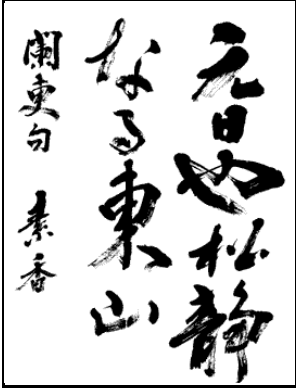 元日や松静
なる東山
闌更句 素香